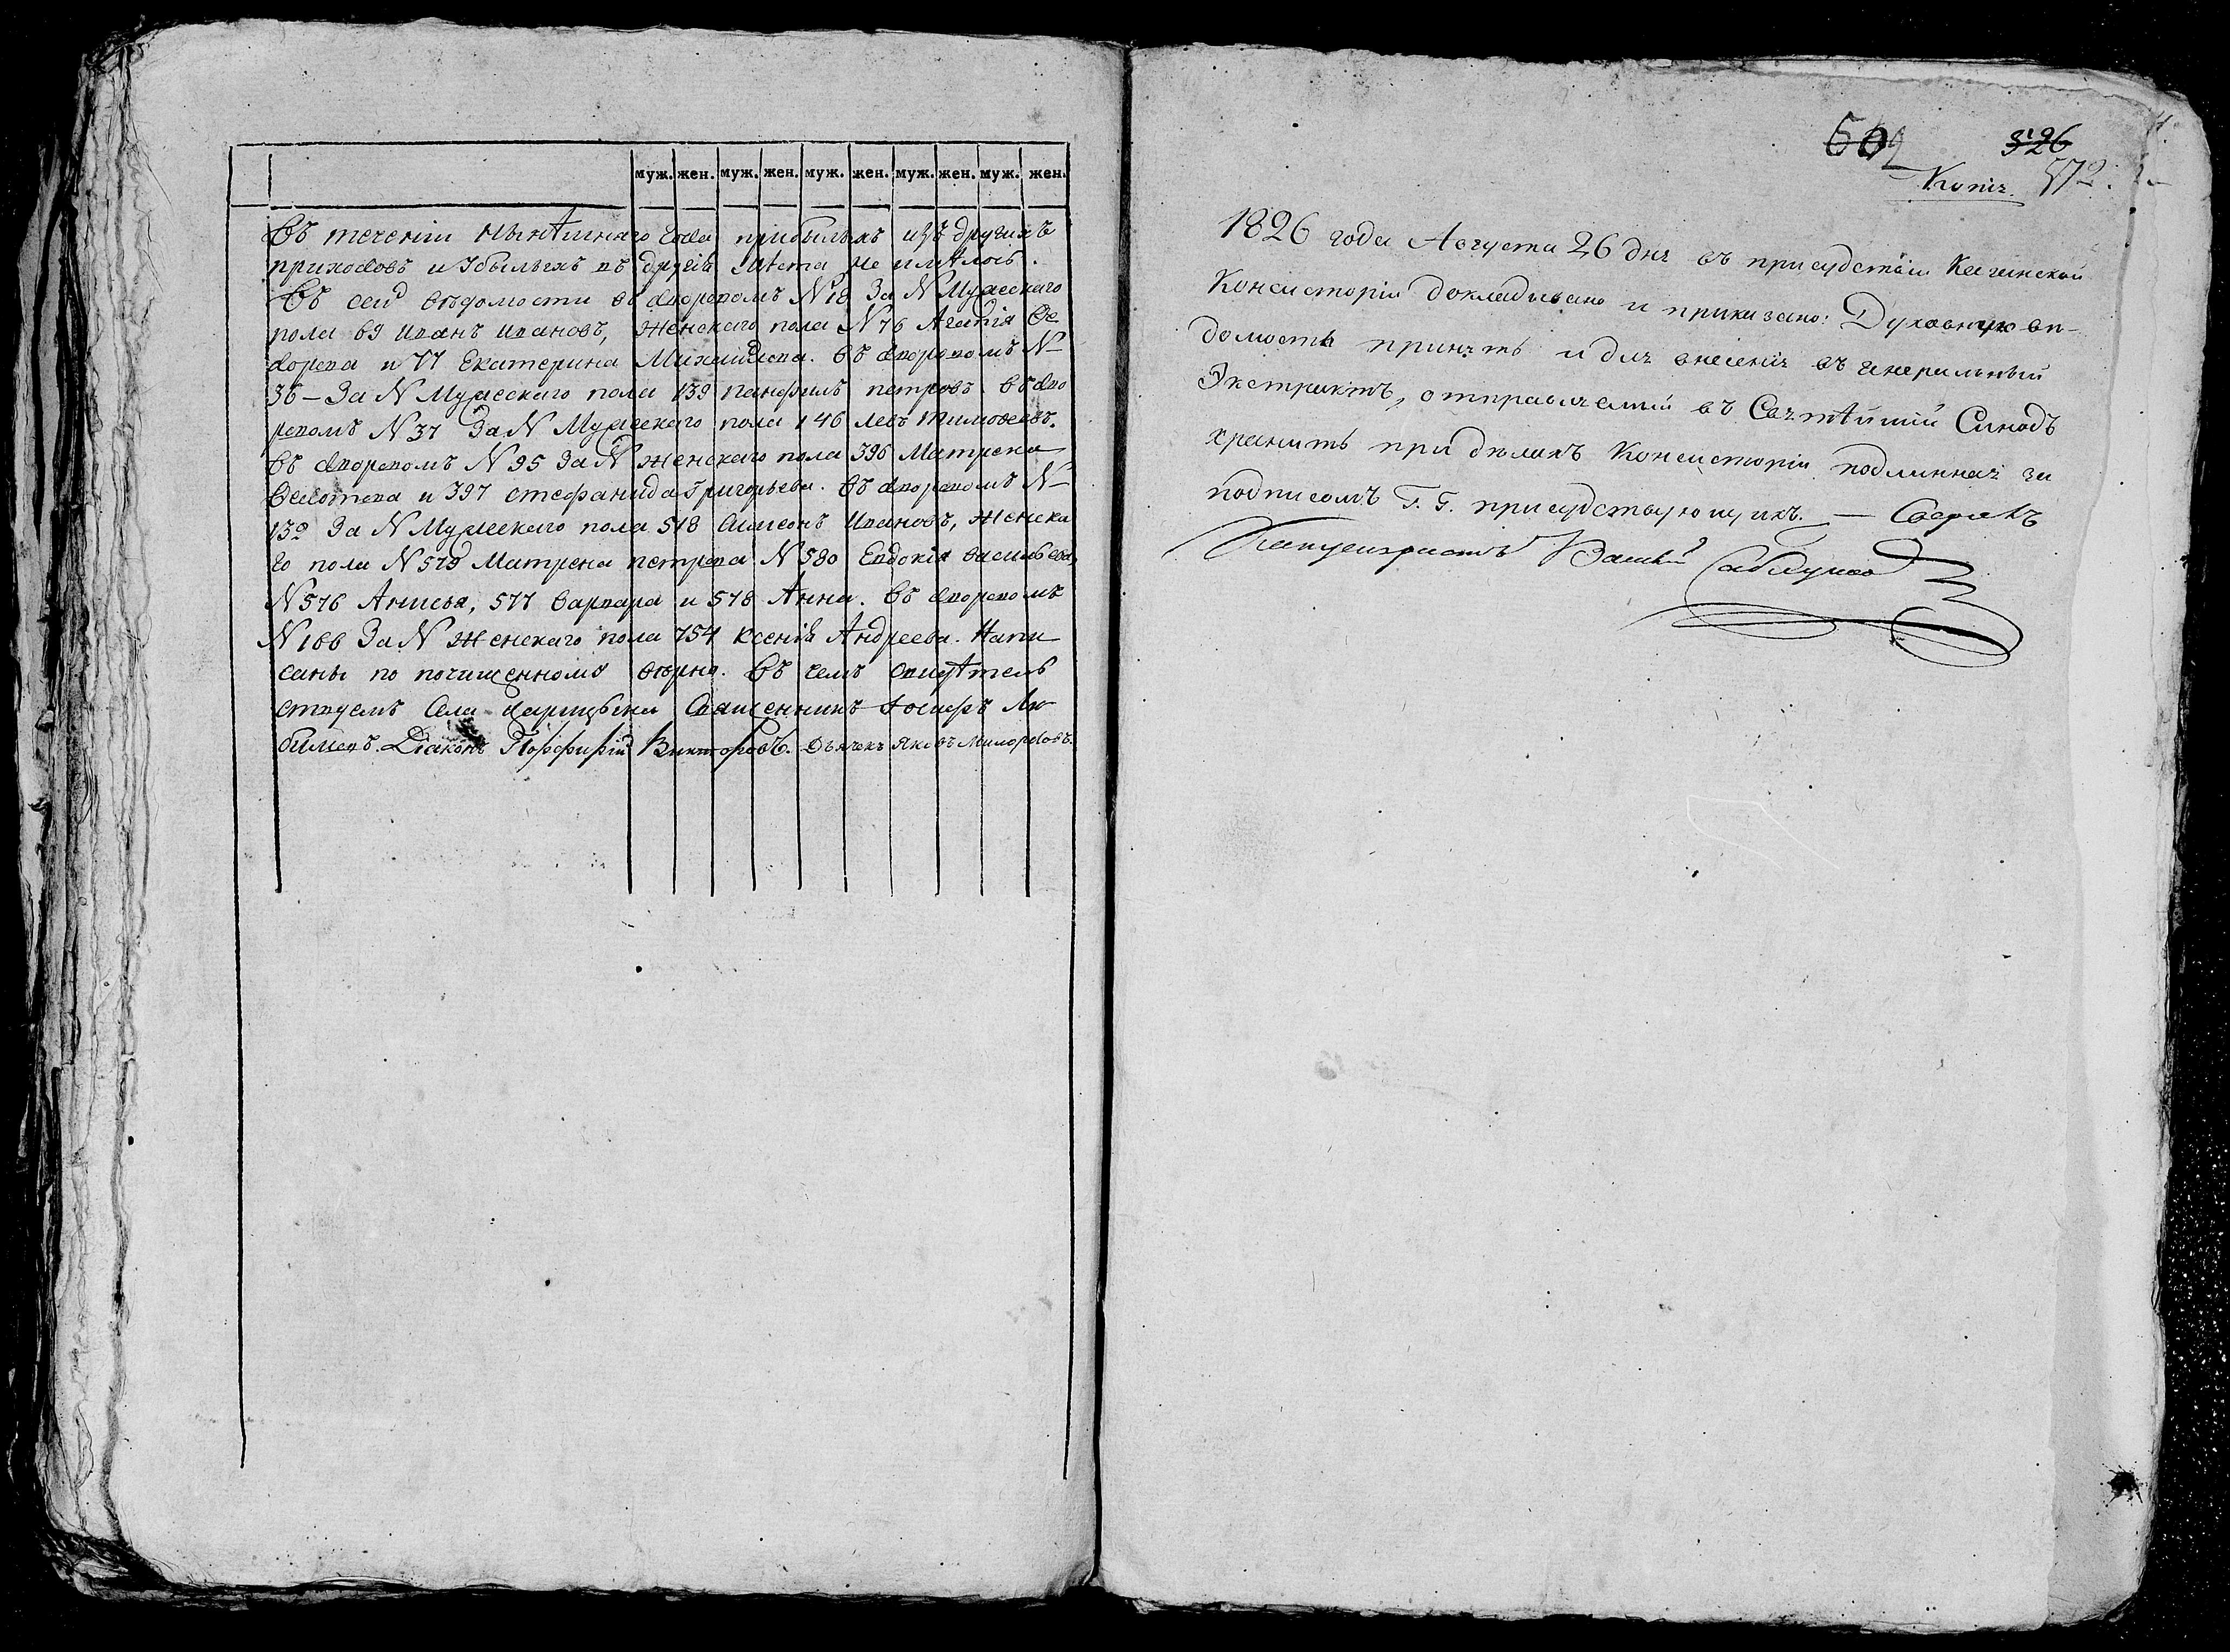 муж. жен. муж. жен. муж. жен. муж. жен. муж. жен.
Въ теченіи нынѣшняго года прибылыхъ изъ другихъ
приходовъ и убылыхъ въ другія мѣста не имѣлось.
Въ сей вѣдомости въ дворовомъ N 18 За N Мужескаго
пола 69 Иванъ Ивановъ, женскаго пола N 76 Агафія Ѳе
дорова и 77 Екатерина Михайлова. Въ дворовомъ N
36 – За N Мужескаго пола 139 Панфилъ Петровъ. Въ дво
ровомъ N 37 За N Мужескаго пола 146 Левъ Тимоѳеевъ.
Въ дворовомъ N 95 За N женскаго пола 396 Матрена
Ѳедотова и 397 Стефанида Григорьева. Въ дворовомъ N
132 За N Мужескаго пола 518 Симеонъ Ивановъ, женска
го пола N 579 Матрена Петрова N 580 Евдокія Васильева,
N 576 Анисья, 577 Варвара и 578 Анна. Въ дворовомъ
N 166 За N Женскаго пола 754 Ксенія Андреева. Напи
саны по почищенному вѣрно. Въ чемъ свидѣтель
ствуемъ Села Царицына Священникъ Іосифъ Лю
бимовъ. Діаконъ Порфирій Викторовъ. Дьячекъ Яковъ
569 326
Копія. 572.
1826 года Августа 26 дня въ присудствіи
Консисторіи докладывано и приказано: Духовную вѣ-
домость принять и для внесенія въ генеральный
Экстрактъ, отправляемый въ Свяtѣйшій Синодъ
хранить при дѣлахъ Консисторіи подлинная за
подписомъ Г. Г. присудствующихъ. —
Канцеляристъ